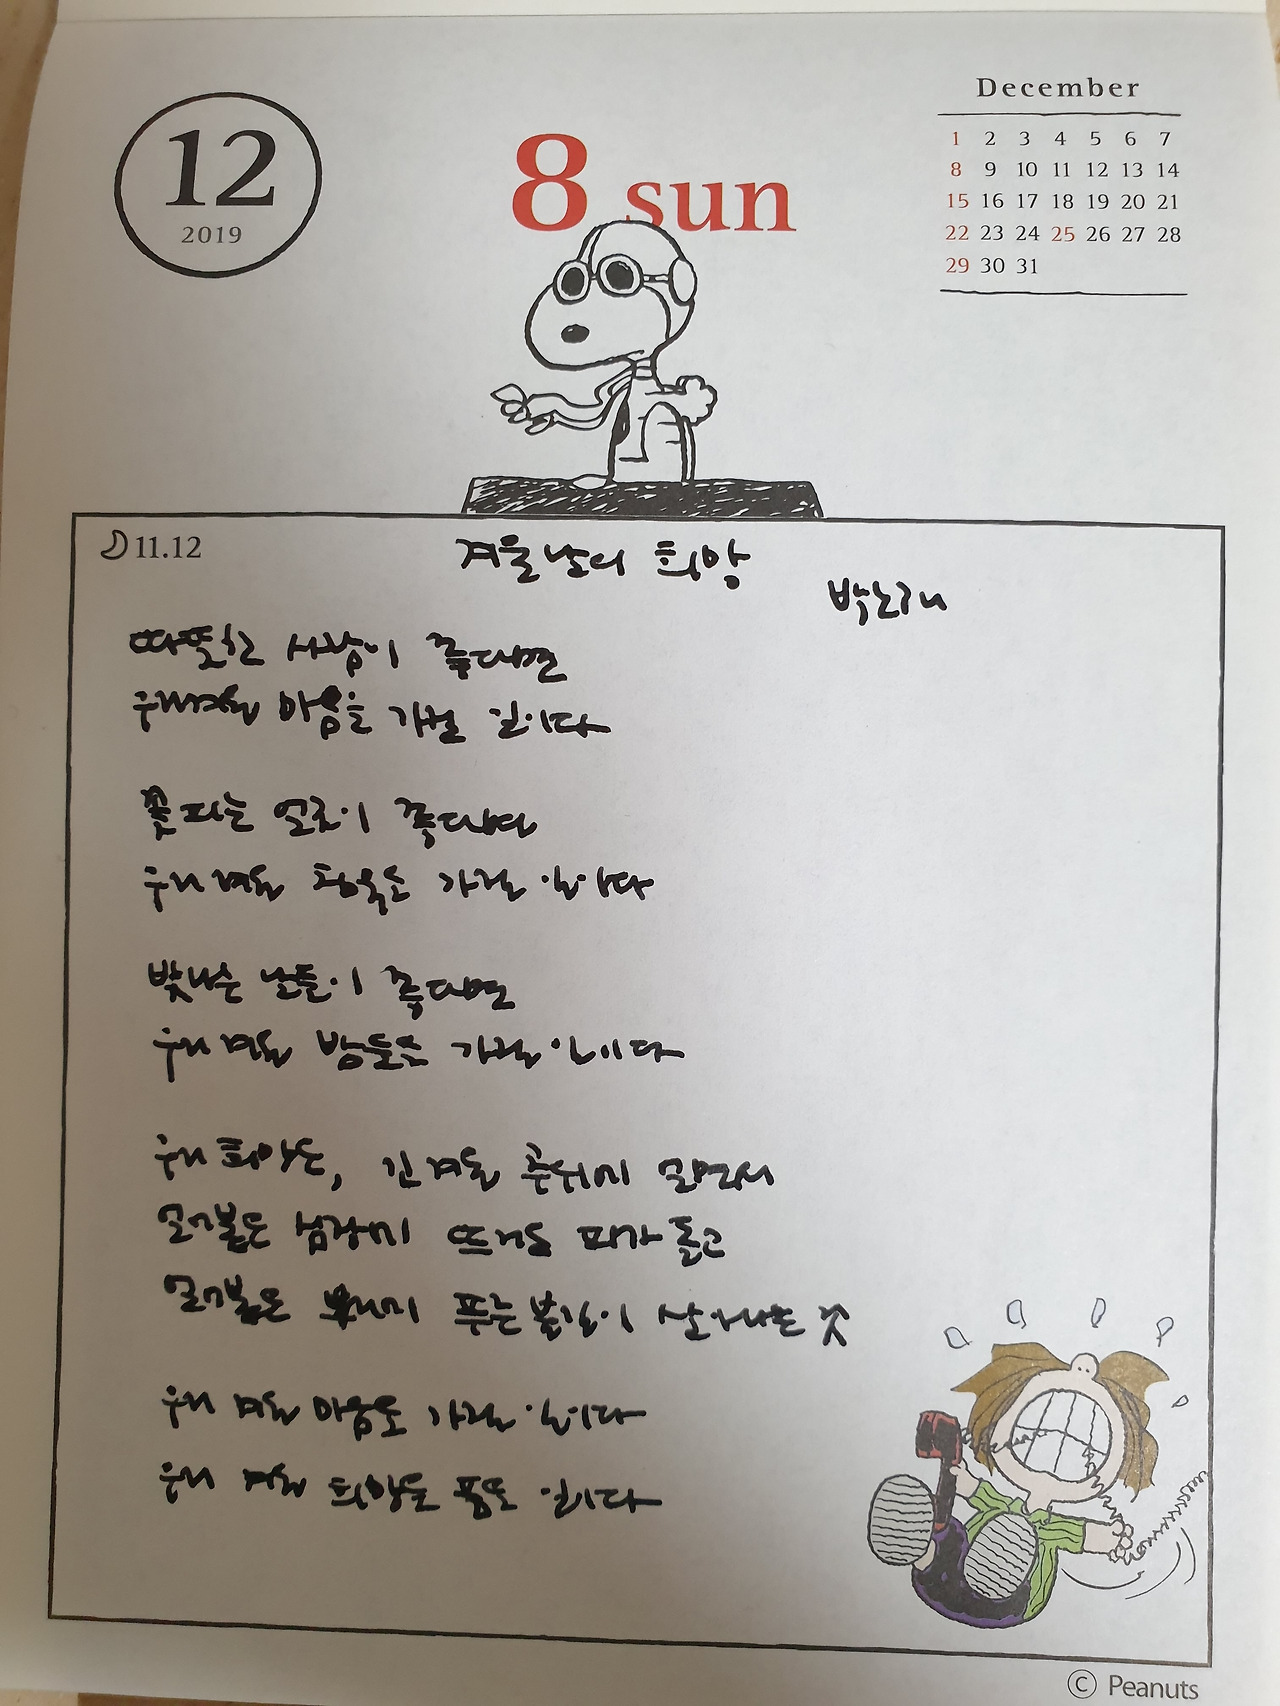 12
2019
8 sun
December
1 2 3 4 5 6 7
8 9 10 11 12 13 14
15 16 17 18 19 20 21
22 23 24 25 26 27 28
29 30 31
11.12
겨울날의 희망
박노해
따뜻한 사람이 좋다면
우리 겨울 마음을 가질 일이다
꽃 피는 얼굴이 좋다면
우리 겨울 침묵을 가질 일이다
빛나는 날들이 좋다면
우리 겨울 밤들을 가질 일이다
우리 희망은, 긴 겨울 추위에 얼면서
얼어붙은 심장에 뜨거운 피가 돌고
얼어붙은 뿌리에 푸른 불길이 살아나는 것
우리 겨울 마음을 가질 일이다
우리 겨울 희망을 품을 일이다
© Peanuts